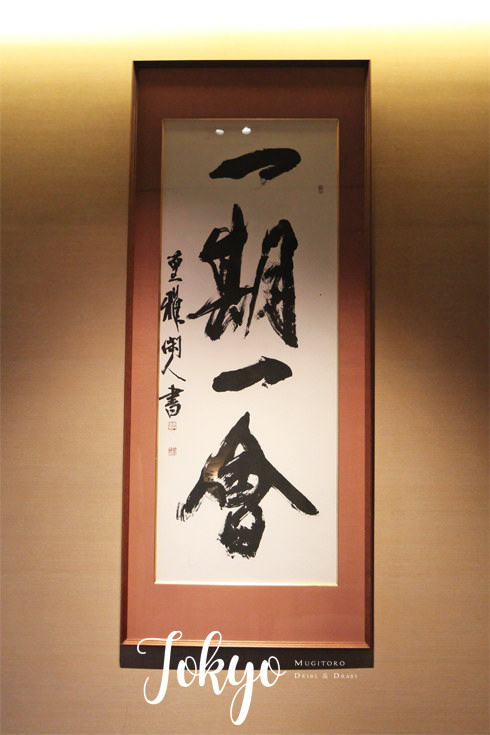 一期一會
重雅閑人書
Tokyo
MUGITORO
DRIBS & DRABS